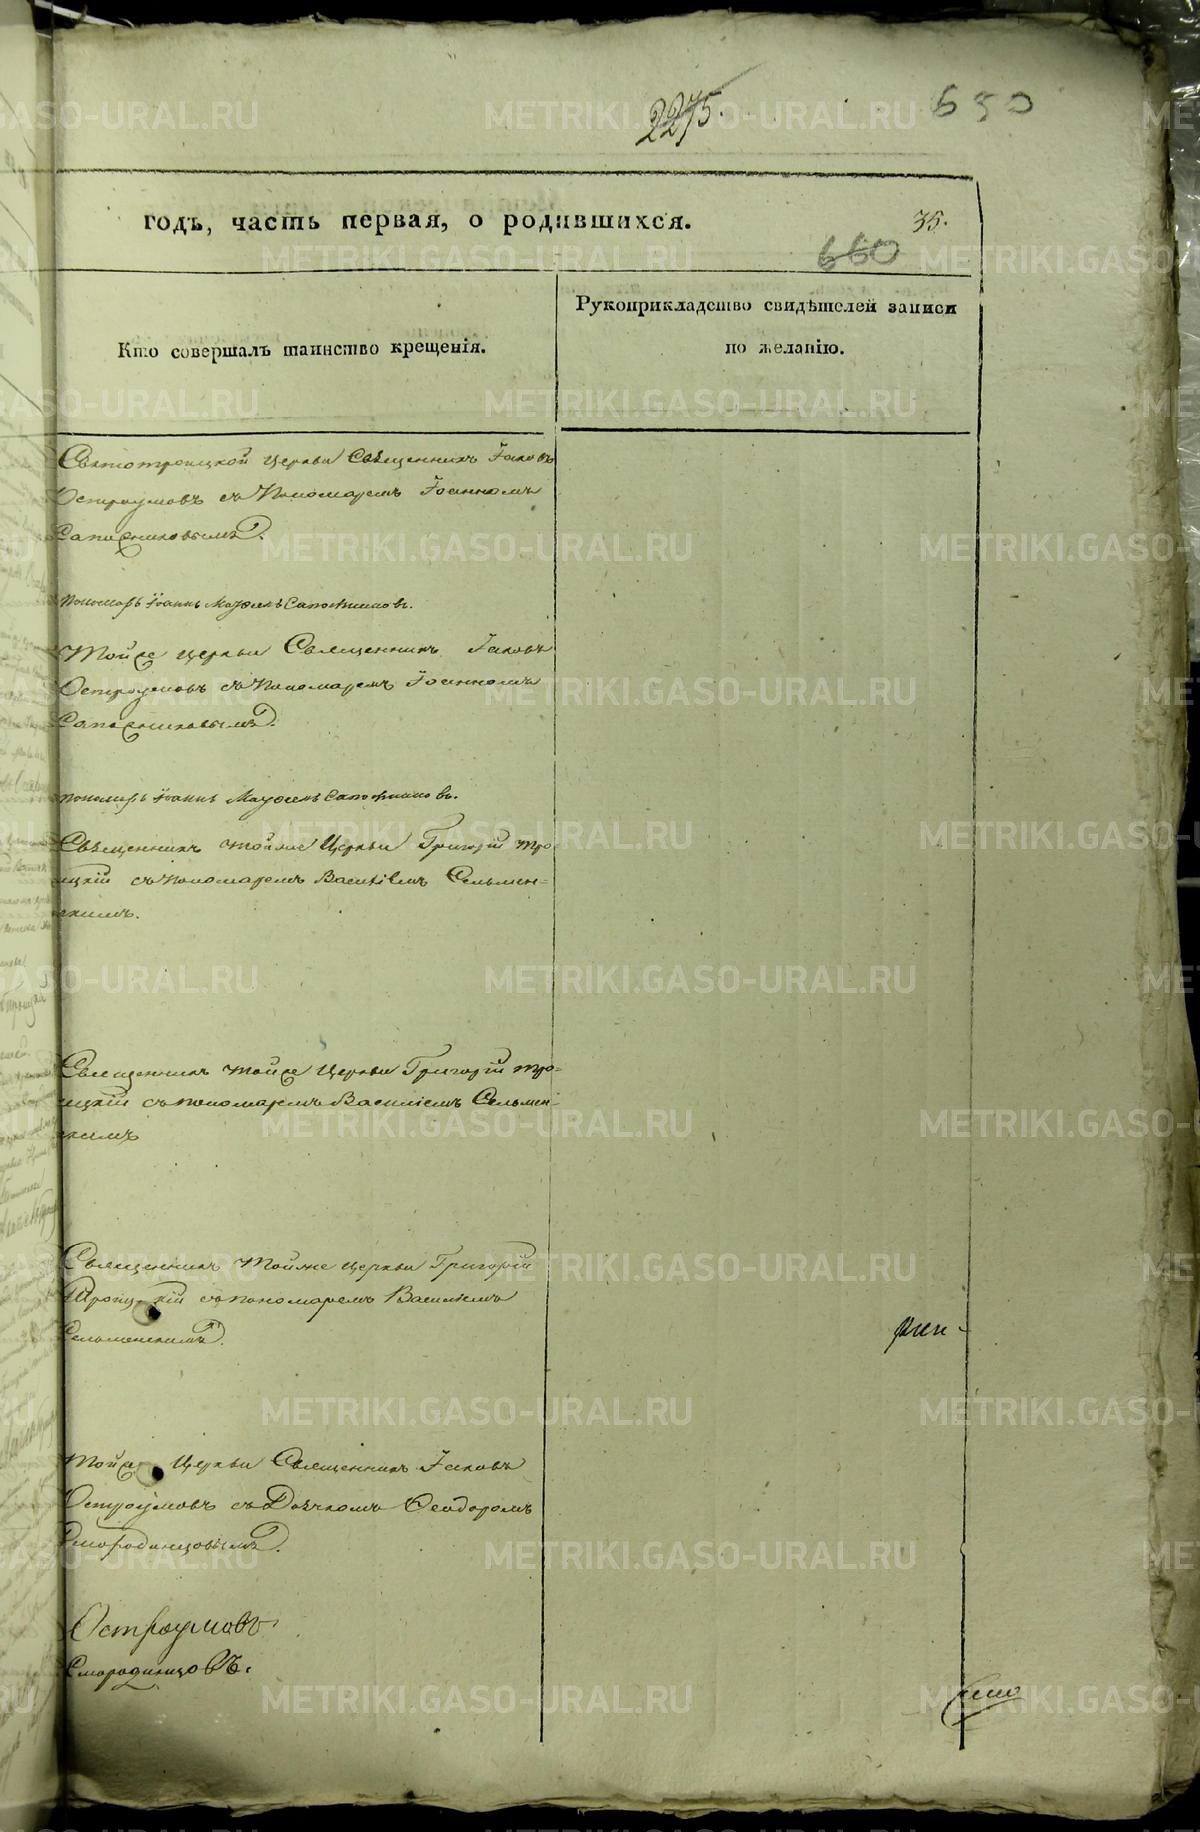 2275.
650
годъ, часть первая, о родившихся.
35.
660
Кто совершалъ таинство крещенія.
Рукоприкладство свидѣтелей записи
по желанію.
Святотроицкой Церкви Священникъ Іаковъ
Остроумовъ съ Пономаремъ Іоанномъ
Сапожниковымъ.
Пономарь Іоаннъ Сапожниковъ.
Тойже Церкви Священникъ Іаковъ
Остроумовъ съ Пономаремъ Іоанномъ
Сапожниковымъ.
пономарь Іоаннъ Сапожниковъ.
Священникъ тойже Церкви Григорій Тро-
ицкій съ Пономаремъ Василіемъ Сельмен=
скимъ.
Священникъ тойже Церкви Григорій Тро=
ицкій съ пономаремъ Василіемъ Сельмен-
скимъ
Священникъ Тойже Церкви Григорій
Троицкій съ пономаремъ Василіемъ
Сельменскимъ.
Тойже Церкви Священникъ Іаковъ
Остроумовъ съ Дьячкомъ Феодоромъ
Смородинцовымъ.
Остроумовъ
Смородинцовъ.
METRIKI.GASO-URAL.RU